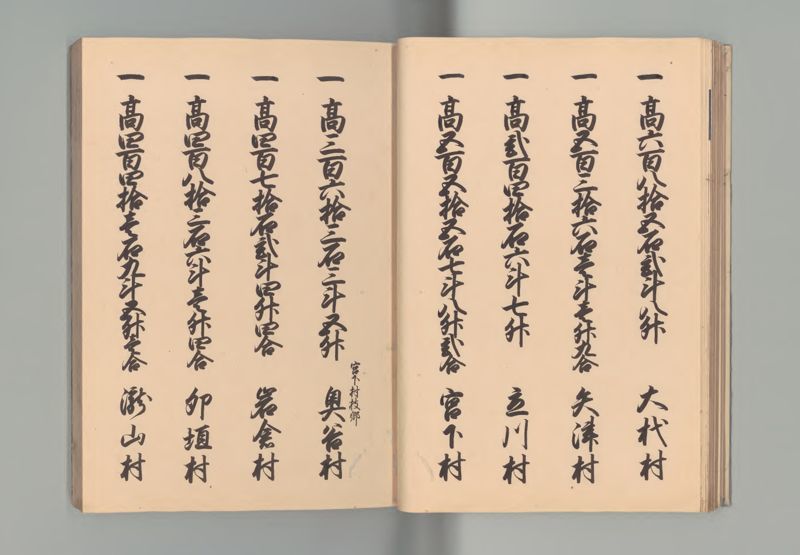 一 高六百八拾五石弐斗八升 大杙村
一 高五百三拾六石壱斗壱升九合 矢津村
一 高弐百四拾石六斗七升 立川村
一 高五百五拾五石七斗八升弐合 宮下村
宮下村枝郷
一 高三百六拾三石三斗五升 奥谷村
一 高四百七拾石弐斗四升四合 岩倉村
一 高四百八拾三石六斗壱升四合 卯垣村
一 高四百四拾壱石九斗五升壱合 瀧山村